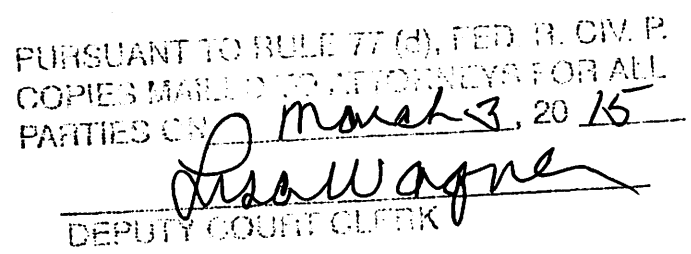 PURSUANT TO RULE 77 (d), FED. R. CIV. P.
COPIES MAILED TO ATTORNEYS FOR ALL
PARTIES ON March 3, 20 15
Lisa Wagner
DEPUTY COURT CLERK